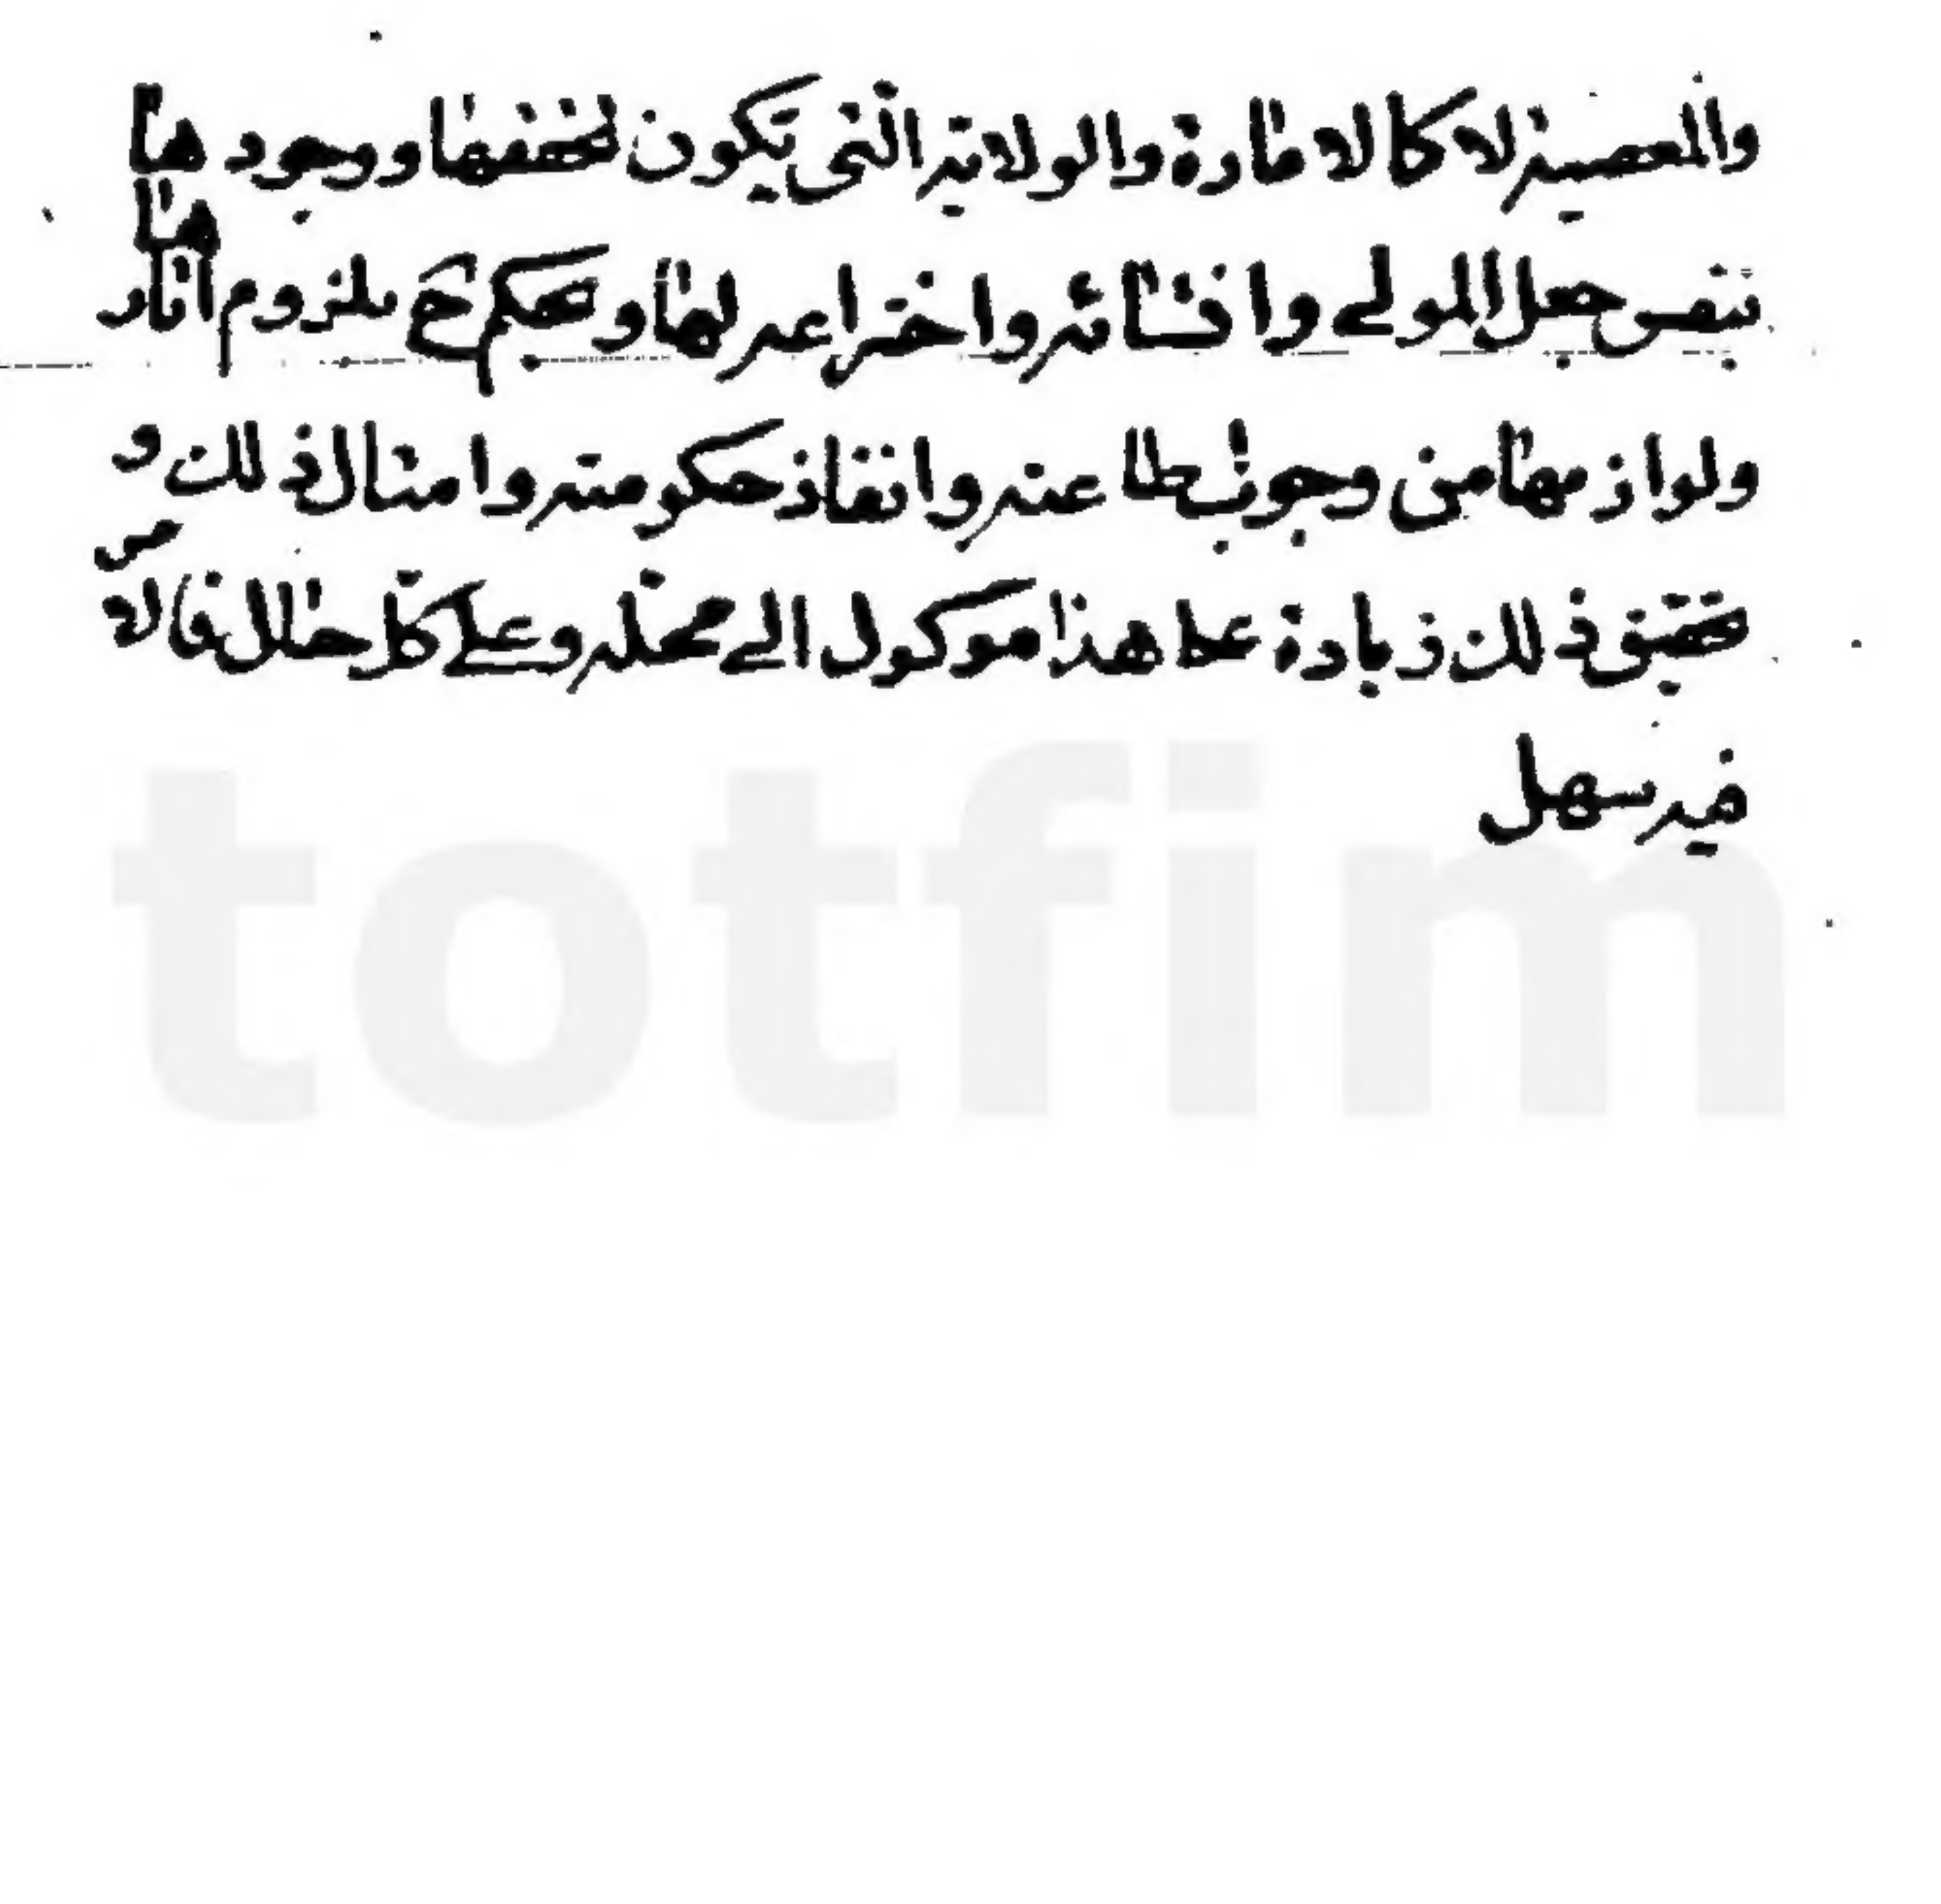 والمعصية لا كالامارة والولاية التي يكون تحققها ووجودها
بنفس جعل المولى وانشائه واختراعه لها ويحكم ح بلزوم اثارها
ولوازمها من وجوب اطاعته وانفاذ حكومته وامثال ذلك و
تحقيق ذلك زيادة على هذا موكول الى محله وعلى كل حال فالامر
فيه سهل
totfim